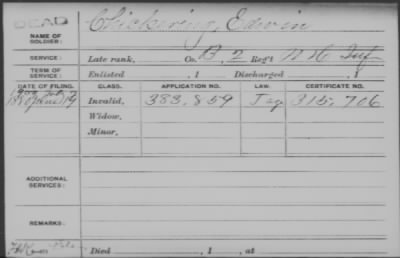 DEAD
Chickering, Edwin
NAME OF SOLDIER:
SERVICE: Late rank, Co. B, 2 Reg't N H Inf
TERM OF SERVICE: Enlisted , 1 Discharged , 1
DATE OF FILING. CLASS. APPLICATION NO. LAW. CERTIFICATE NO.
1880 June 19 Invalid, 383,859 315,706
Widow,
Minor,
ADDITIONAL SERVICES:
REMARKS:
Died , 1 , at